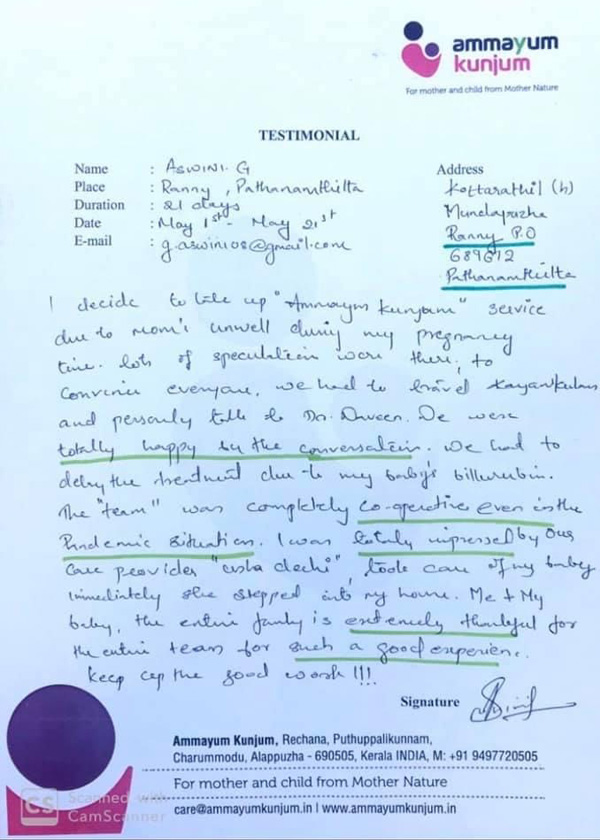 ammayum
kunjum
For mother and child from Mother Nature
TESTIMONIAL
Name : ASWINI. G
Place : Ranny, Pathanamthitta
Duration : 21 days
Date : May 1st - May 21st
E-mail : g.aswini08@gmail.com
Address
Kottarathil (h)
Mundapuzha
Ranny P.O
689672
Pathanamthitta
I decide to take up "Ammayum Kunjum" service
due to mom's unwell during my pregnancy
time. lots of speculation were there, to
convince everyone, we had to travel Kayamkulam
and personly talk to Dr. Naveen. We were
totally happy by the conversation. We had to
delay the treatment due to my baby's billurubin.
The "team" was completely co-operative even in the
Pandemic situation. I was totaly impressed by our
care provider "usha chechi", took care of my baby
immediately she stepped into my house. Me & My
baby, the entire family is extremely thankful for
the entire team for such a good experience.
Keep up the good work !!!
Signature
Ammayum Kunjum, Rechana, Puthuppalikunnam,
Charummodu, Alappuzha - 690505, Kerala INDIA, M: +91 9497720505
For mother and child from Mother Nature
care@ammayumkunjum.in | www.ammayumkunjum.in
CS Scanned with
CamScanner